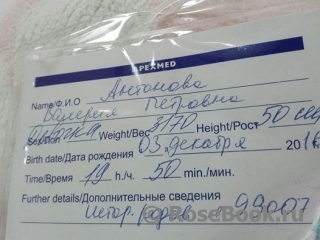 APEXMED
Антонова
Name/Ф.И.О Валерия Петровна
Sex/Пол девочка Weight/Вес 3170 Height/Рост 50 см
Birth date/Дата рождения 03 декабря 201
Time/Время 19 h./ч. 50 min./мин.
Further details/Дополнительные сведения
Истор. родов 99007
RoseBook.ru